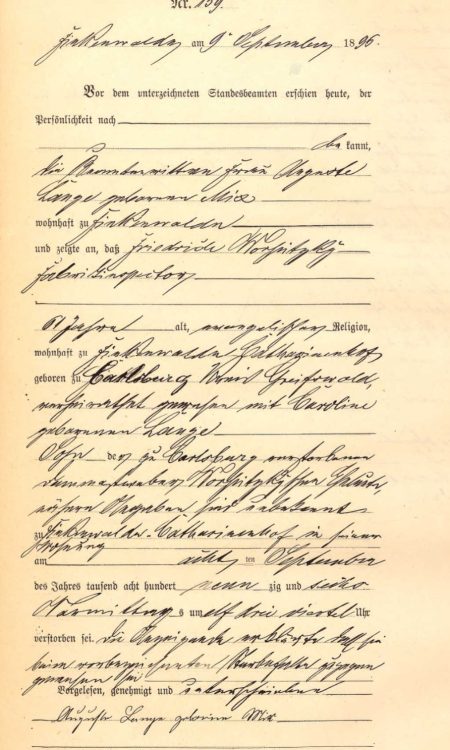 Nr. 159.
Finkenwalde, am 9 September 1896.
Vor dem unterzeichneten Standesbeamten erschien heute, der
Persönlichkeit nach
be kannt,
die Frau Auguste
Lange geborenen Mix
wohnhaft zu Finkenwalde
und zeigte an, daß Friedrich Worsitzky
Fabrikinspector
Jahre alt, evangelischer Religion,
wohnhaft zu Finkenwalde Catharinenhof
geboren zu Carlsburg Kreis Greifswald,
verheirathet gewesen mit Caroline
geborenen Lange
Sohn der zu Carlsburg verstorbenen
Worsitzky'schen Eheleute,
nähere Angaben sind unbekannt
zu Finkenwalde-Catharinenhof in seiner
Wohnung
am acht ten September
des Jahres tausend acht hundert neun zig und sechs
Vormittag s um elf drei viertel Uhr
verstorben sei. Die Anzeigende erklärte daß sie
beim vorbezeichneten Sterbefalle zugegen
gewesen sei
Vorgelesen, genehmigt und unterschrieben
Auguste Lange geborene Mix